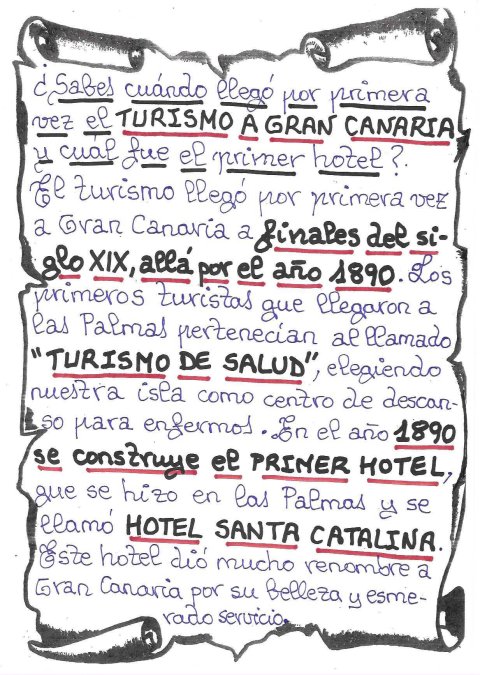 ¿Sabes cuándo llegó por primera
vez el TURISMO A GRAN CANARIA
y cuál fue el primer hotel?.
El turismo llegó por primera vez
a Gran Canaria a finales del si-
glo XIX, allá por el año 1890. Los
primeros turistas que llegaron a
Las Palmas pertenecían al llamado
"TURISMO DE SALUD", elegiendo
nuestra isla como centro de descan-
so para enfermos. En el año 1890
se construye el PRIMER HOTEL,
que se hizo en Las Palmas y se
llamó HOTEL SANTA CATALINA.
Este hotel dió mucho renombre a
Gran Canaria por su belleza y esme-
rado servicio.